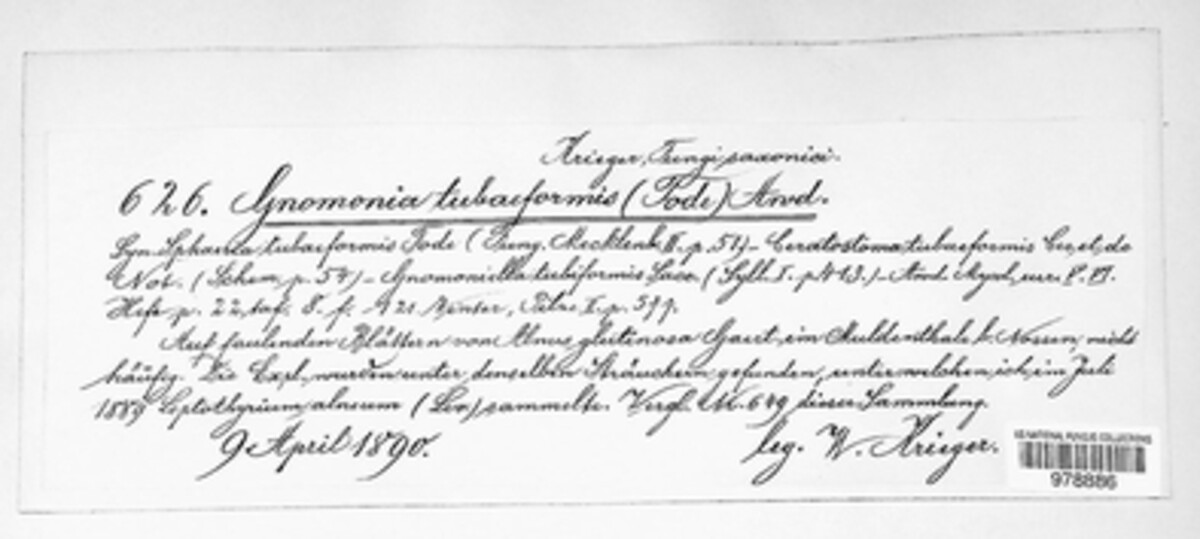 Krieger, Fungi saxonici.
626. Gnomonia tubaeformis (Tode) Awd.
Syn. Sphaeria tubaeformis Tode (Fung. Mecklenb. II. p. 51) – Ceratostoma tubaeformis Ces. et de
Not. (Schem. p. 54) – Gnomoniella tubiformis Sacc. (Syll. I. p. 413.) – Awd. Myc. eur. V. VI.
Heft p. 22, taf. 8. f. 121 Winter, Pilze II. p. 599.
Auf faulenden Blättern von Alnus glutinosa Gaert. im Muldenthale b. Nossen, nicht
häufig. Die Expl. wurden unter denselben Sträuchern gefunden, unter welchen ich im Juli
1889 Leptothyrium alneum (Lév.) sammelte. Vergl. Nr. 649 dieser Sammlung.
9 April 1890. leg. W. Krieger.
US NATIONAL FUNGUS COLLECTIONS
978886